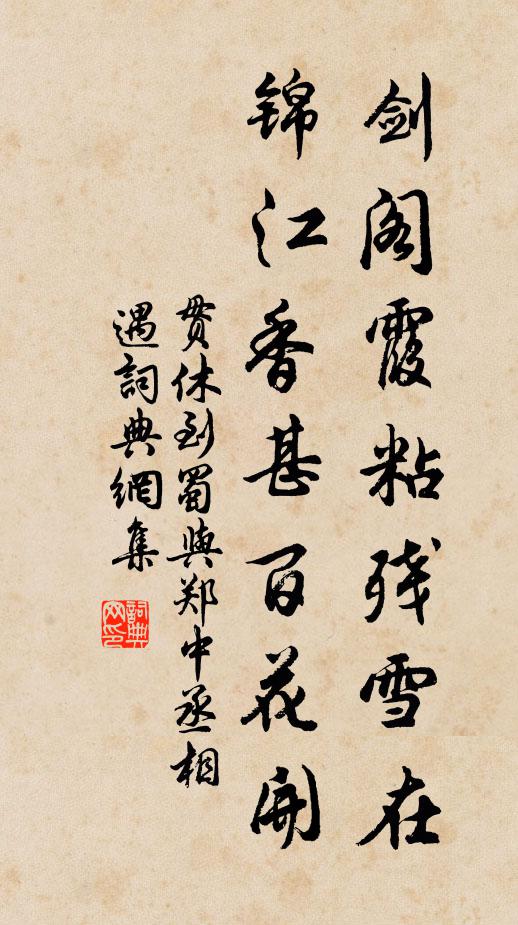 剑阁霞粘残雪在
锦江香甚百花开
贯休到蜀与郑中丞相
遇詞典網集
詞典网印